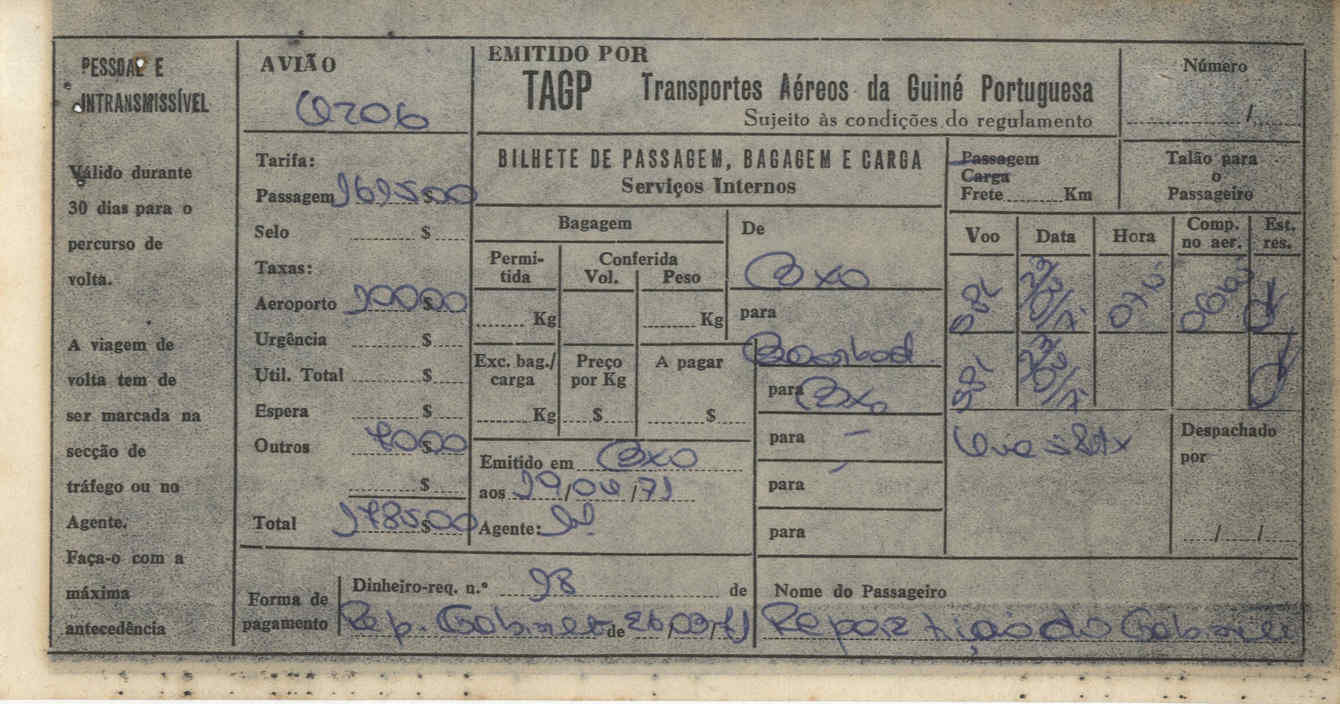 PESSOAL E
INTRANSMISSÍVEL
Válido durante
30 dias para o
percurso de
volta.
A viagem de
volta tem de
ser marcada na
secção de
tráfego ou no
Agente.
Faça-o com a
máxima
antecedência
AVIÃO
Tarifa:
Passagem $
Selo $
Taxas:
Aeroporto $
Urgência $
Util. Total $
Espera $
Outros $
$
Total $
EMITIDO POR
TAGP Transportes Aéreos da Guiné Portuguesa
Sujeito às condições do regulamento
Número
/
BILHETE DE PASSAGEM, BAGAGEM E CARGA
Serviços Internos
Passagem
Carga
Frete Km
Talão para
o
Passageiro
Bagagem
Permi-
tida
Conferida
Vol. Peso
Kg Kg
Exc. bag./
carga
Preço
por Kg
A pagar
Kg $ $
Emitido em Bxo
aos 19/04/71
Agente:
De
Bxo
para
para Bxo
para -
para
para
Voo Data Hora Comp. no aer. Est. res.
Despachado
por
/ /
Forma de
pagamento
Dinheiro-req. n.º 98 de
Rep. Gabinete de
Nome do Passageiro
Repartição do Gabinete